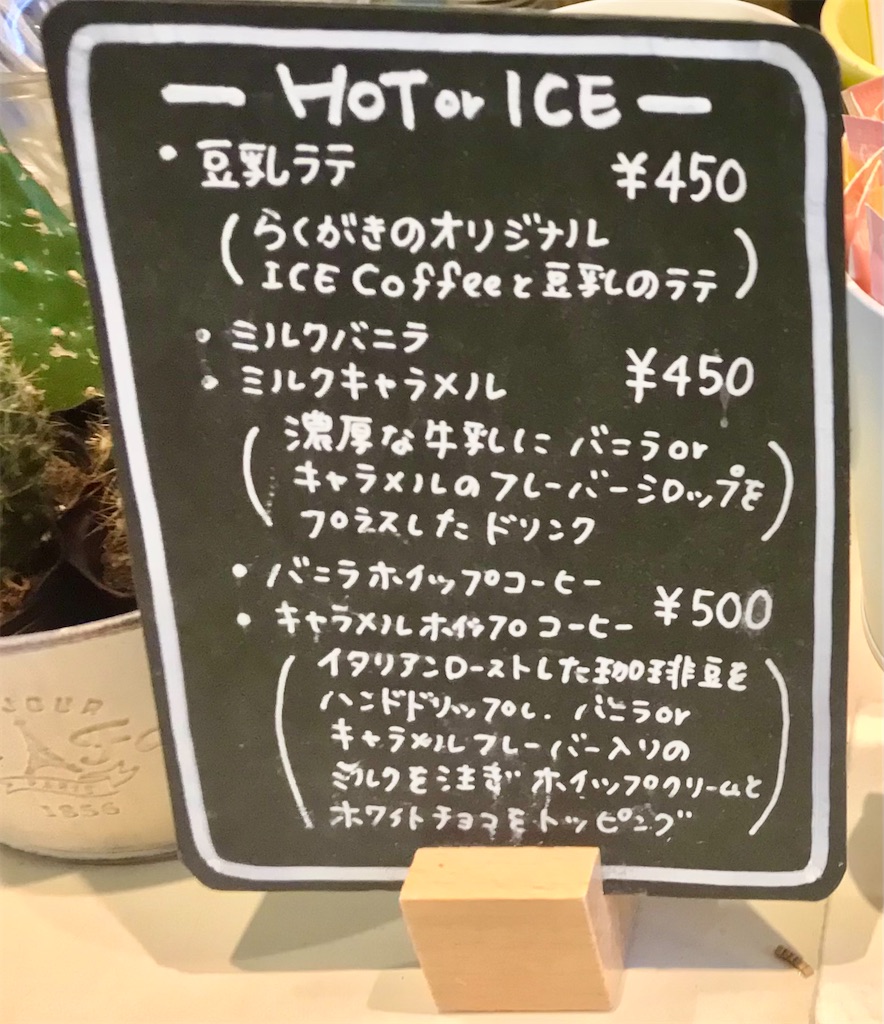 — HOT or ICE —
・豆乳ラテ ¥450
(らくがきのオリジナル
ICE Coffeeと豆乳のラテ)
・ミルクバニラ
・ミルクキャラメル ¥450
(濃厚な牛乳にバニラor
キャラメルのフレーバーシロップを
プラスしたドリンク)
・バニラホイップコーヒー
・キャラメルホイップコーヒー ¥500
(イタリアンローストした珈琲豆を
ハンドドリップし、バニラor
キャラメルフレーバー入りの
ミルクを注ぎホイップクリームと
ホワイトチョコをトッピング)
PARIS
1856